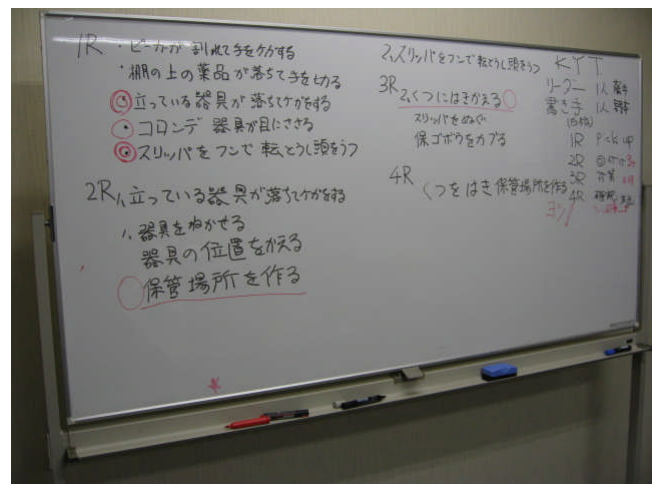 1R ・ビーカが割れて手をケガする
・棚の上の薬品が落ちて手を切る
立っている器具が落ちてケガをする
コロンデ 器具が目にささる
スリッパをフンで転とうし頭をうつ
2R 1、立っている器具が落ちてケガをする
1、器具をねかせる
器具の位置をかえる
保管場所を作る
2、スリッパをフンで転とうし頭をうつ
3R
2、くつにはきかえる
スリッパをぬぐ
保ゴボウをカブる
4R くつをはき保管場所を作る
ヨシ!
KYT
リーダー 1人
書き手 1人
1R Pick up
2R
3R
4R